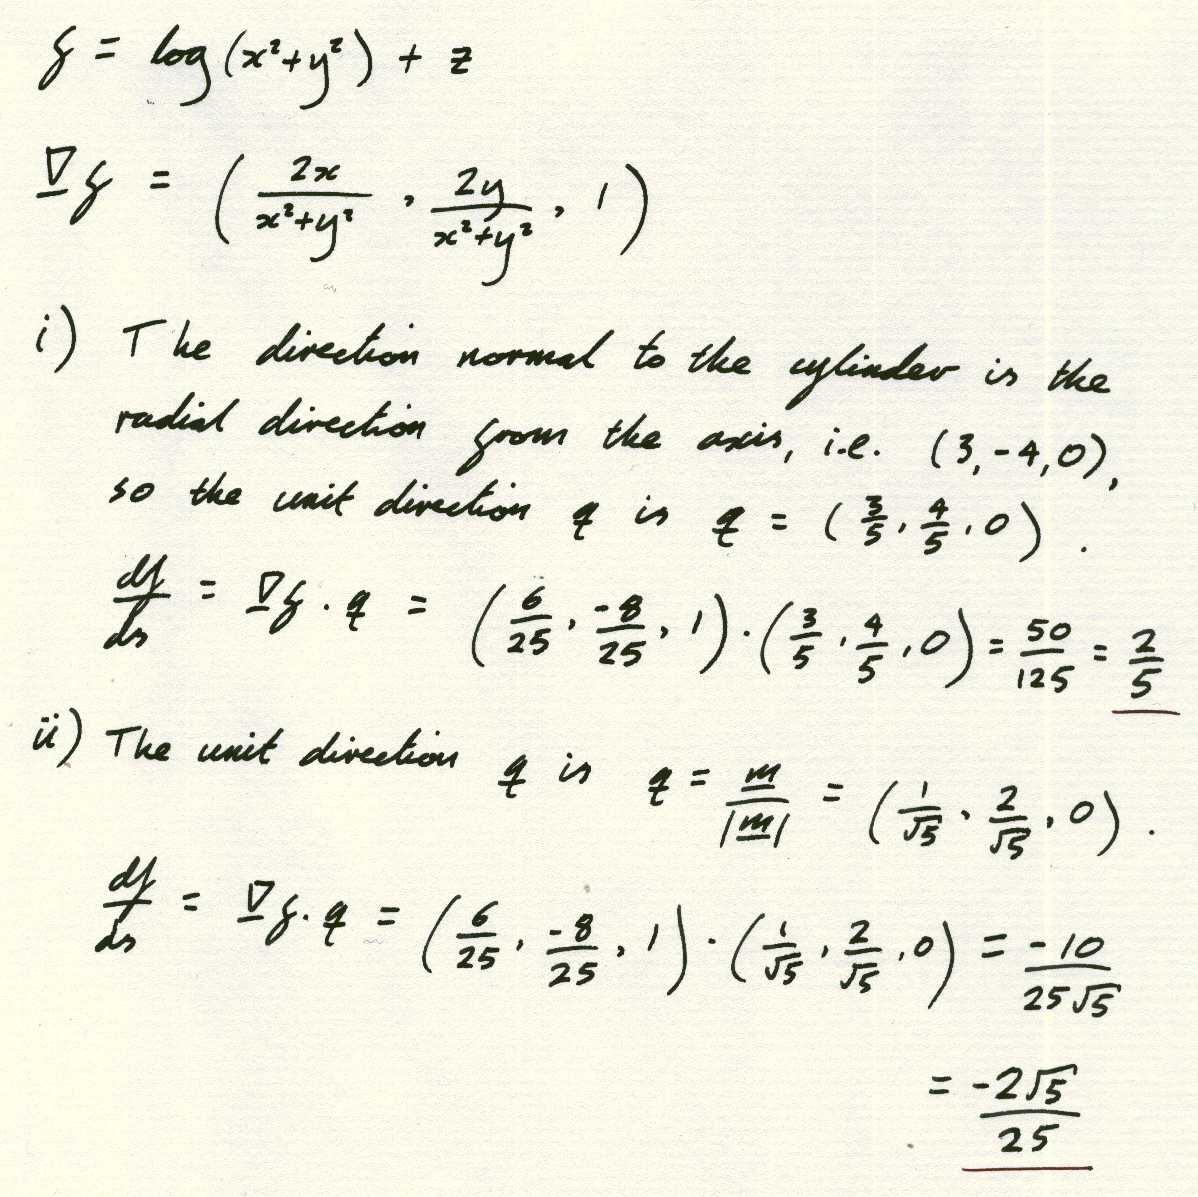 f = log(x²+y²) + z
∇f = ( 2x/(x²+y²) , 2y/(x²+y²) , 1 )
i) The direction normal to the cylinder is the
radial direction from the axis, i.e. (3, -4, 0),
so the unit direction q is q = (3/5, 4/5, 0) .
df/ds = ∇f . q = (6/25, -8/25, 1) . (3/5, 4/5, 0) = 50/125 = 2/5
ii) The unit direction q is q = m/|m| = (1/√5, 2/√5, 0) .
df/ds = ∇f . q = (6/25, -8/25, 1) . (1/√5, 2/√5, 0) = -10/25√5
= -2√5/25